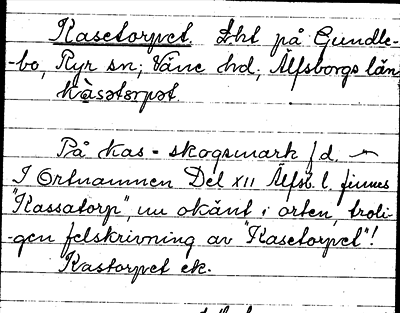 Kasetorpet. Lht på Gundle-
-bo, Ryr sn; Väne hd; Älfsborgs län
kàsetɵrpet
På Kas-skogsmark f d.
I Ortnamnen Del XII Älfsb. l. finnes
"Kassatorp", nu okänt i orten, troli-
-gen felskrivning av "Kasetorpet"!
Kastorpet ek.